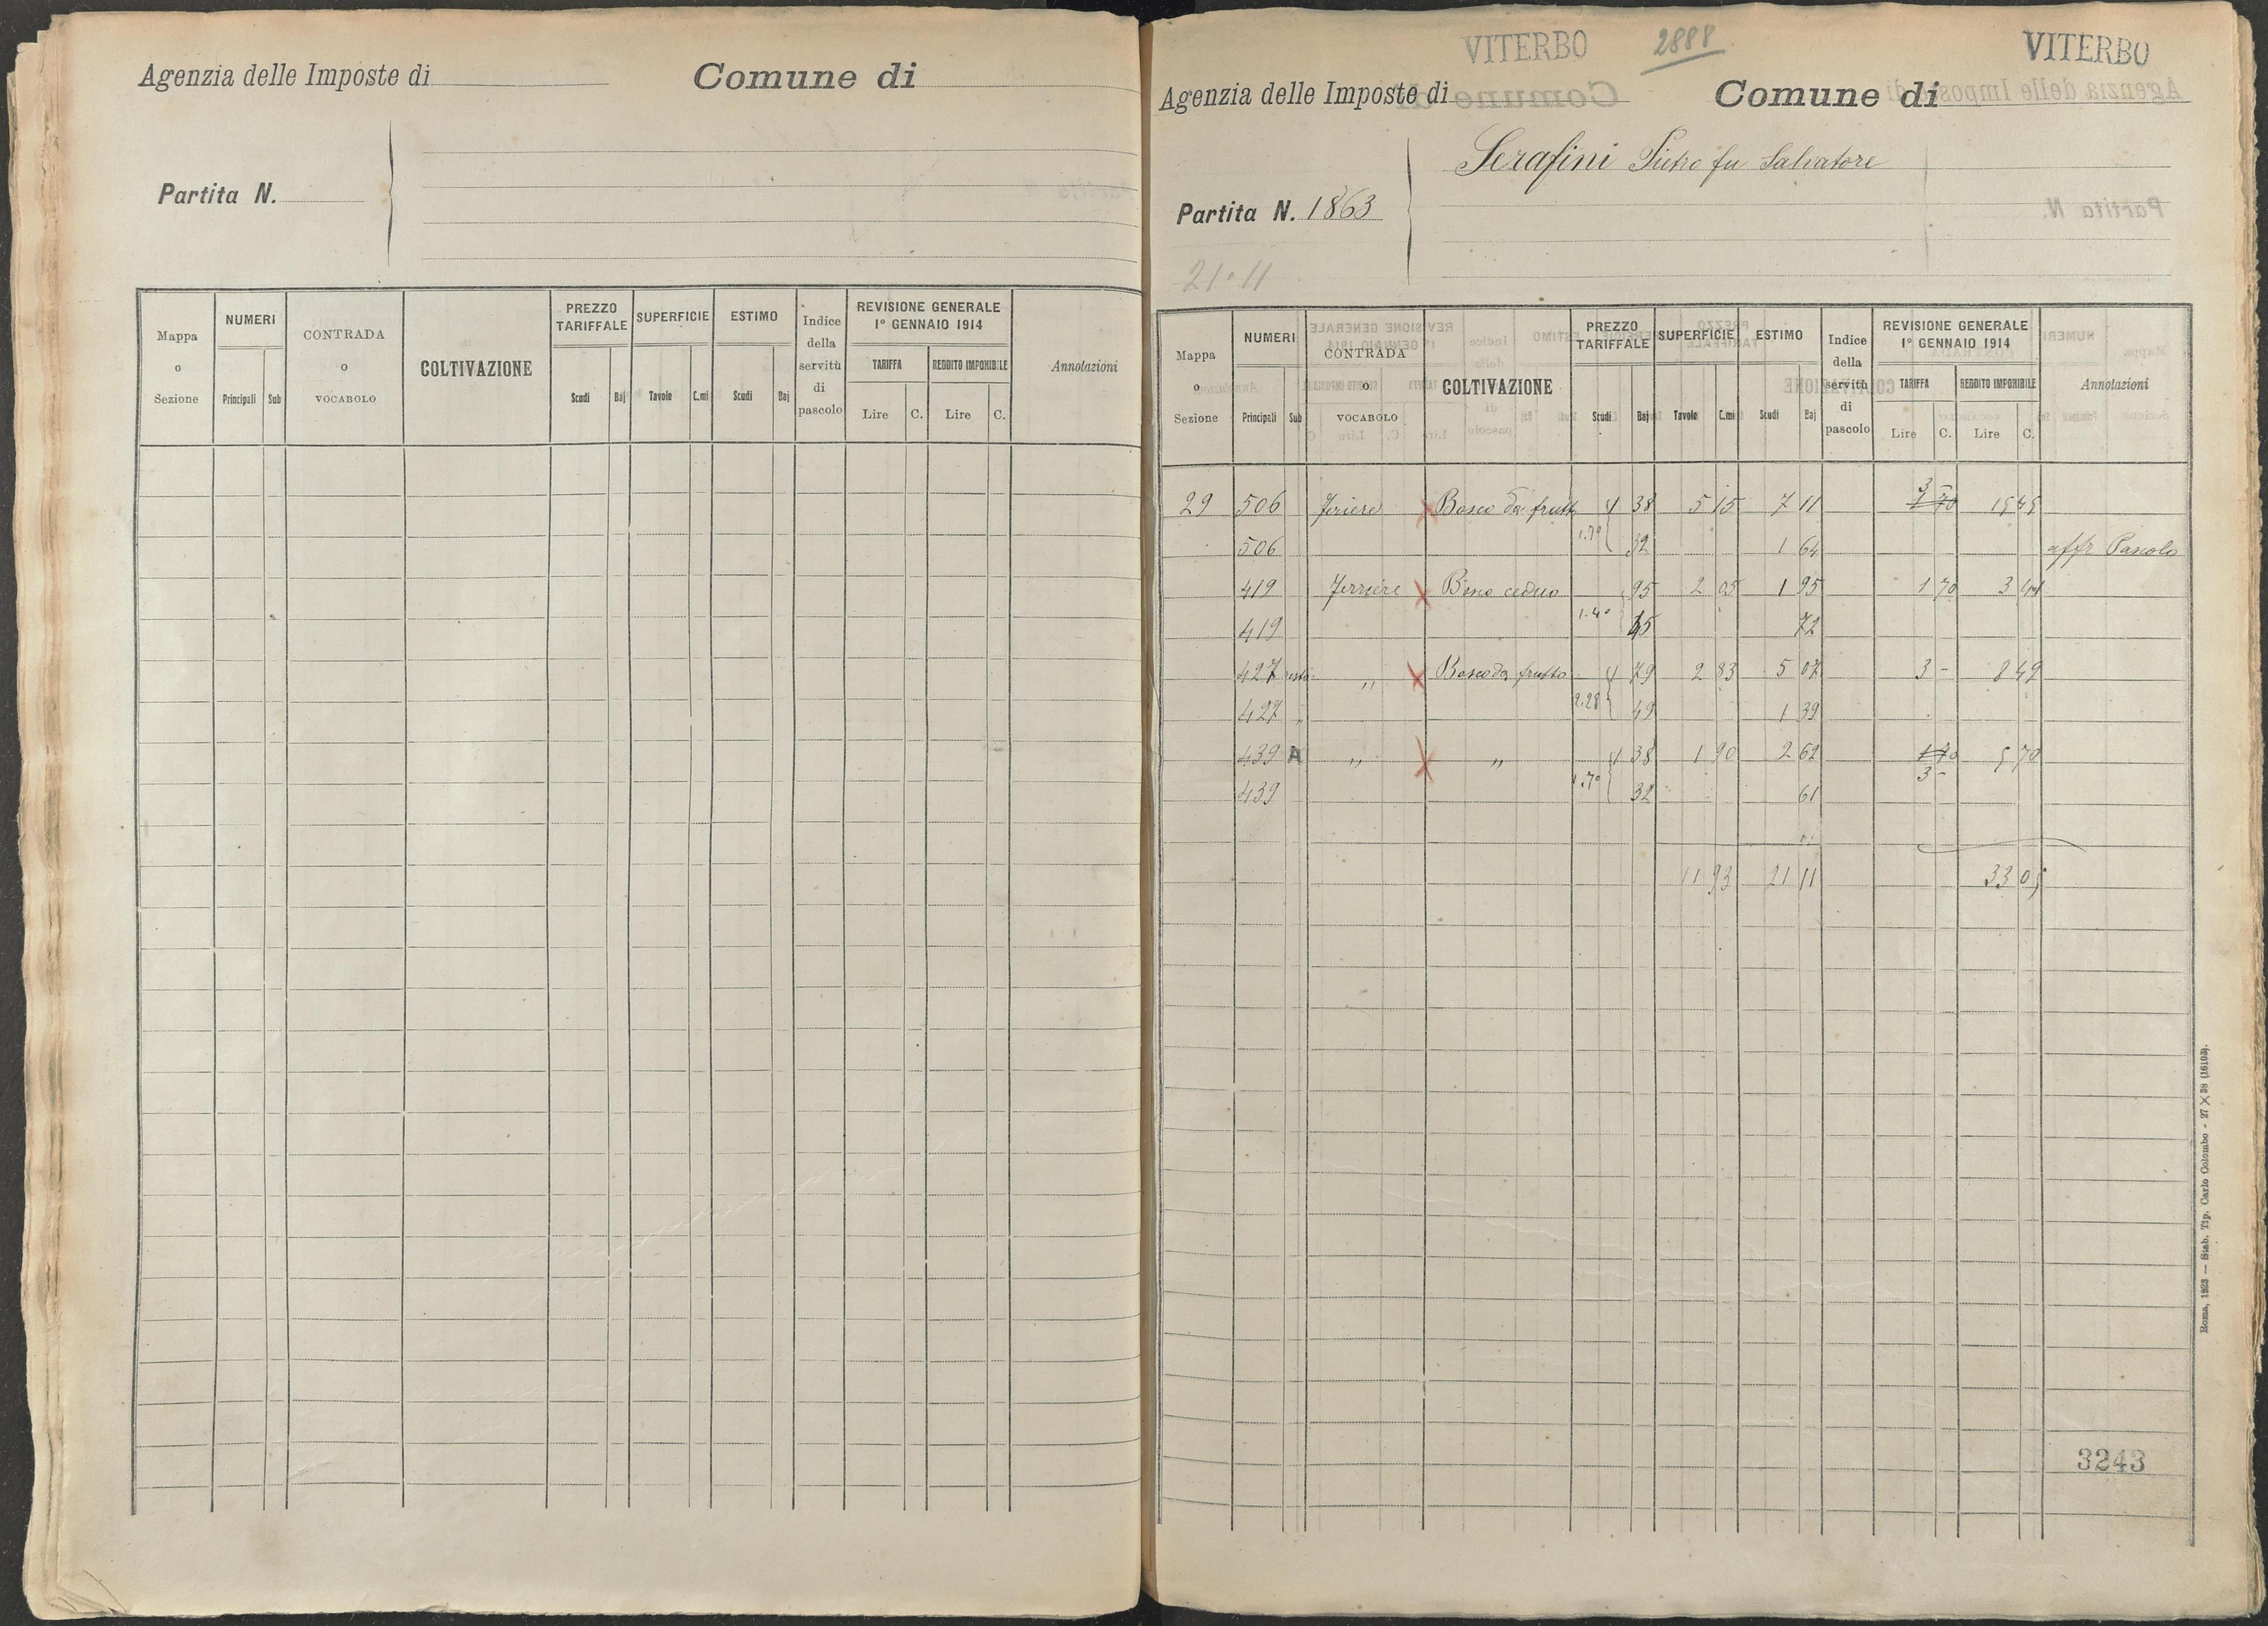 Agenzia delle Imposte di
Comune di
Partita N.
Mappa o Sezione
NUMERI
Principali Sub
CONTRADA o VOCABOLO
COLTIVAZIONE
PREZZO TARIFFALE
Scudi Baj
SUPERFICIE
Tavole C.mi
ESTIMO
Scudi Baj
Indice della servitù di pascolo
REVISIONE GENERALE 1º GENNAIO 1914
TARIFFA REDDITO IMPONIBILE
Lire C. Lire C.
Annotazioni
VITERBO 2888 VITERBO
Agenzia delle Imposte di
Comune di
Serafini Pietro fu Salvatore
Partita N. 1863
21.11
Mappa o Sezione
NUMERI
Principali Sub
CONTRADA o VOCABOLO
COLTIVAZIONE
PREZZO TARIFFALE
Scudi Baj
SUPERFICIE
Tavole C.mi
ESTIMO
Scudi Baj
Indice della servitù di pascolo
REVISIONE GENERALE 1º GENNAIO 1914
TARIFFA REDDITO IMPONIBILE
Lire C. Lire C.
Annotazioni
29 506 Bosco da frutto 1 38 5 15 7 11 3 - 1 70 15 45
506 1.70 32 1 64 affr Pascolo
419 Ferriere Bosco ceduo 95 2 05 1 95 1 70 3 49
419 1.40 45 72
427 resto " Bosco da frutto 1 79 2 83 5 07 3 - 8 49
427 " 2.28 49 1 39
439 A " " 1 38 1 90 2 62 1 70 3 - 5 70
439 1.70 32 61
11 93 21 11 33 05
3243
Roma, 1923 — Stab. Tip. Carlo Colombo - 27 × 38 (16103).